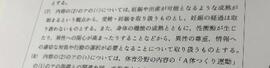 (7) 内容の(2)のアの(イ)については、妊娠や出産が可能となるような成熟が
始まるという観点から、受精・妊娠を取り扱うものとし、妊娠の経過は取
り扱わないものとする。また、身体の機能の成熟とともに、性衝動が生じ
たり、異性への関心が高まったりすることなどから、異性の尊重、情報へ
の適切な対処や行動の選択が必要となることについて取り扱うものとする。
(8) 内容の(2)のアの(エ)については、体育分野の内容の「A体つくり運動」